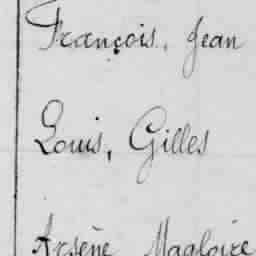 François, Jean
Louis, Gilles
Arsène Magloire